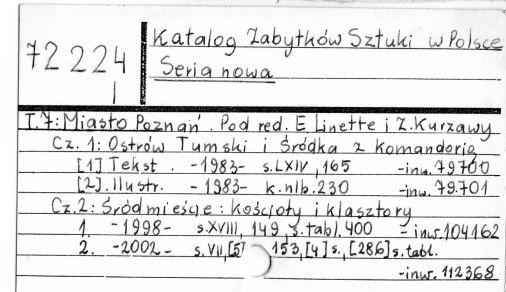 72224
Katalog Zabytków Sztuki w Polsce
Seria nowa
T.7: Miasto Poznań. Pod red. E. Linette i Z. Kurzawy
Cz. 1: Ostrów Tumski i Śródka z Komandorią
[1] Tekst. -1983- s. LXIV, 165 -inw. 79700
[2]. Ilustr. - 1983- k. nlb. 230 -inw. 79.701
Cz. 2: Śródmieście: kościoły i klasztory
1. -1998- s. XVIII, 149, s. tabl. 400 - inw. 104162
2. -2002- s. VII, [5] 153, [4] s., [286] s. tabl.
-inw. 112368